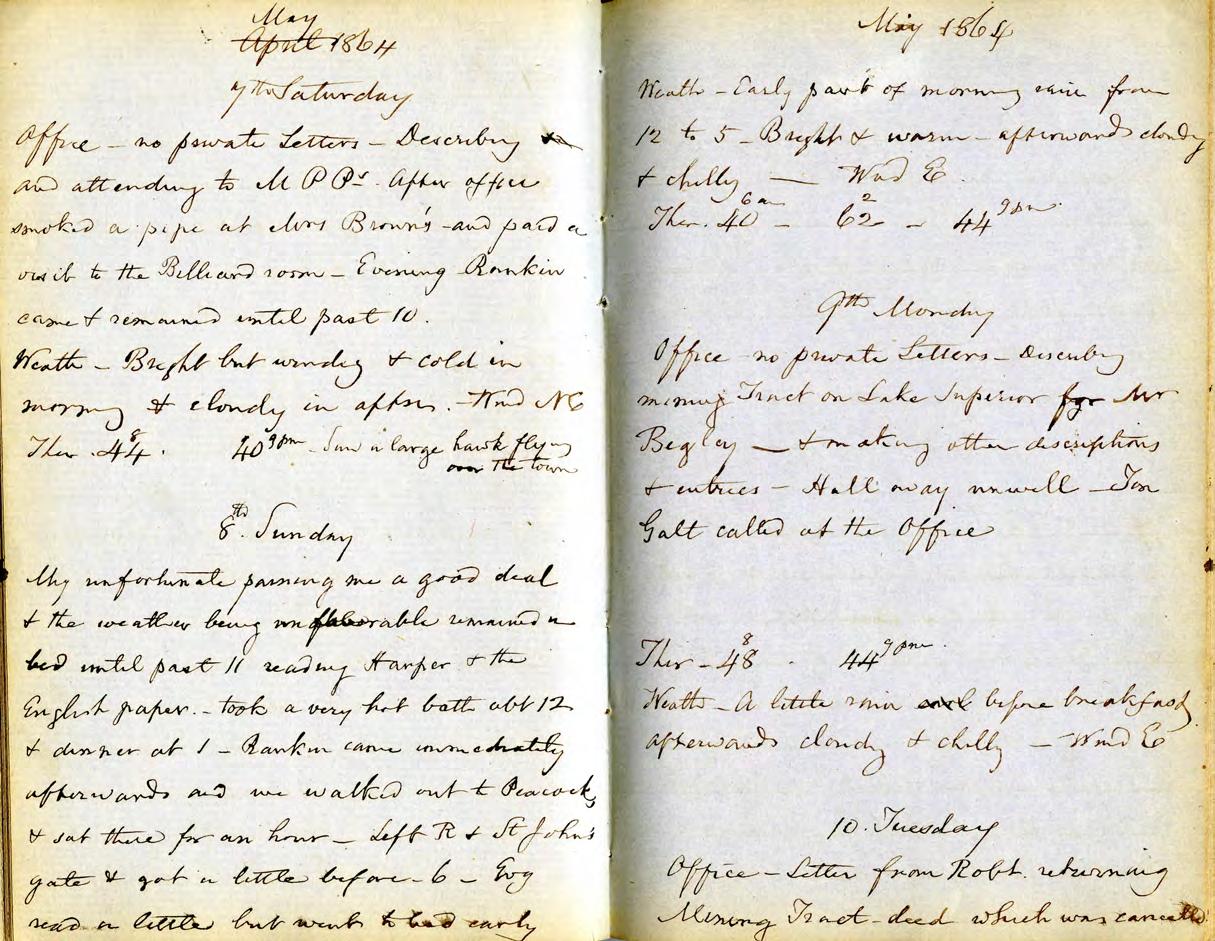 May
April 1864
7th Saturday
Office – no private Letters – Describing
and attending to M P Ps. After office
smoked a pipe at Mrs Brown's – and paid a
visit to the Billiard room – Evening Rankin
came & remained until past 10.
Weath – Bright but windy & cold in
morng & cloudy in aftn. – Wind NE
Ther. 44 8. 40 9pm – Saw a large hawk flying
over the town
8th. Sunday
My unfortunate paining me a good deal
& the weather being unfaborable remained in
bed until past 11 reading Harper & the
English paper. – took a very hot bath abt 12
& dinner at 1 – Rankin came immediately
afterwards and we walked out to Peacocks
& sat there for an hour – Left R & St John's
gate & got in a little before – 6 – Evg
read a little but went to bed early
May 1864
Weath – Early part of morning rain from
12 to 5 – Bright & warm – afterwards cloudy
& chilly — Wind E.
Ther. 40 6am – 62 2 – 44 9pm.
9th Monday
Office no private Letters – Describg
mining Tract on Lake Superior for Mr
Begley — & making other descriptions
& entries – Hall away unwell – Ton
Galt called at the Office
Ther – 48 8 . 44 9pm.
Weath – A little rain before breakfast
afterwards cloudy & chilly – Wind E
10. Tuesday
Office – Letter from Robt. returning
Mining Tract – deed which was cancelled